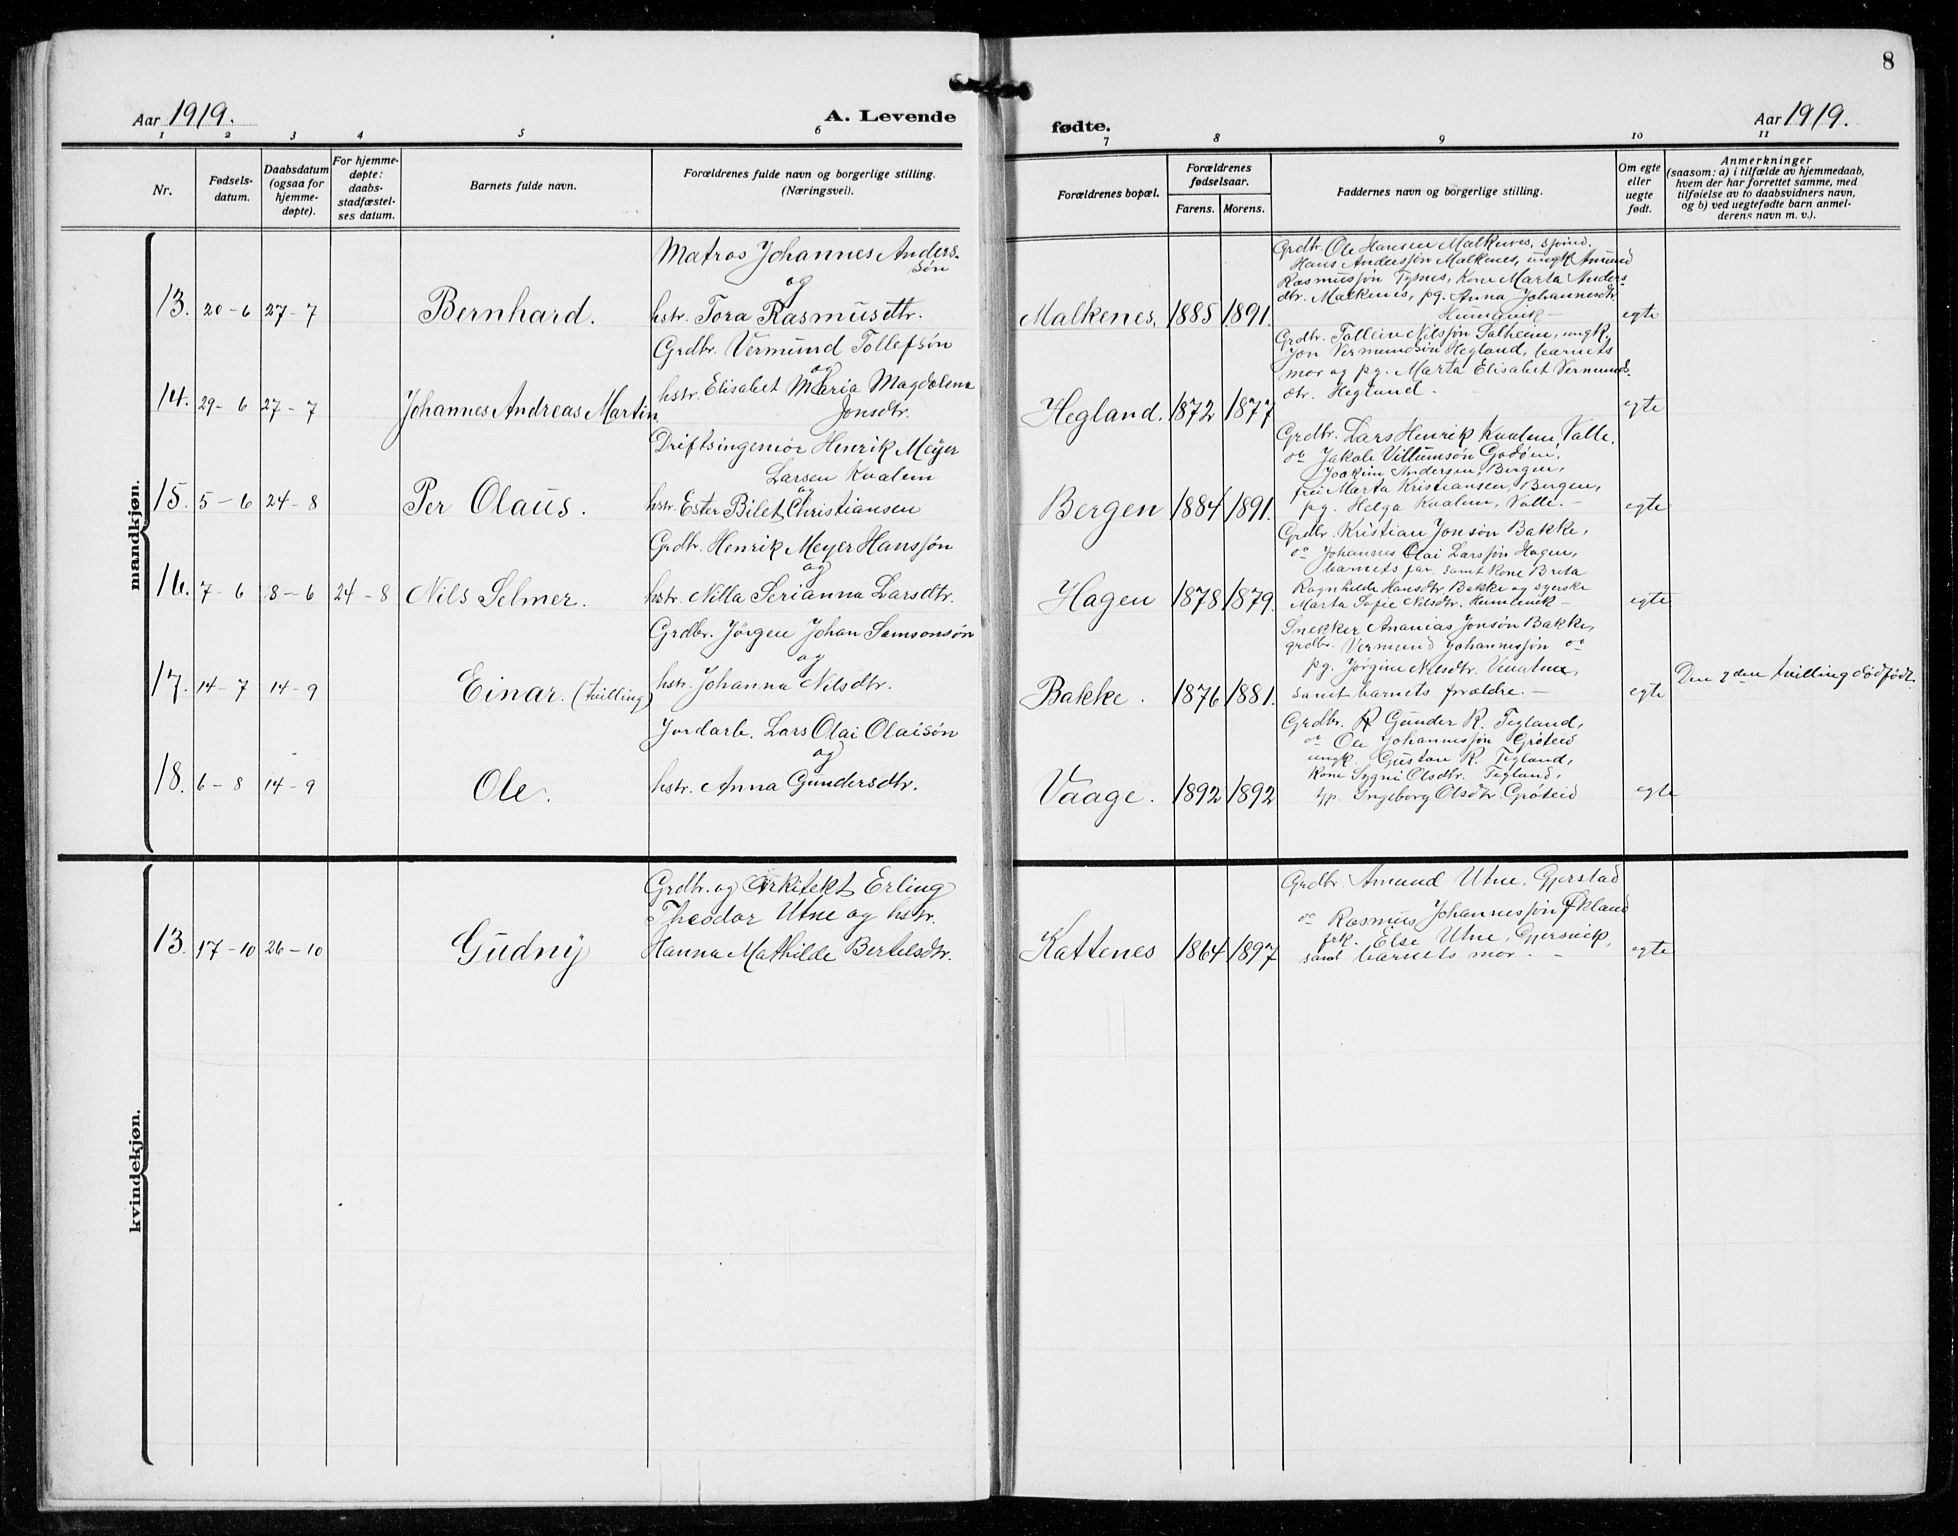 8
Aar 1919.
A. Levende
fødte.
Aar 1919.
1 2 3 4 5 6 7 8 9 10 11
Nr.
Fødsels-
datum.
Daabsdatum
(ogsaa for
hjemme-
døpte).
For hjemme-
døpte:
daabs-
stadfæstel-
ses datum.
Barnets fulde navn.
Forældrenes fulde navn og borgerlige stilling.
(Næringsvei).
Forældrenes bopæl.
Forældrenes
fødselsaar.
Farens. Morens.
Faddernes navn og borgerlige stilling.
Om egte
eller
uegte
født.
Anmerkninger
(saasom: a) i tilfælde av hjemmedaab,
hvem der har forrettet samme, med
tilføielse av to daabsvidners navn,
og b) ved uegtefødte barn anmel-
derens navn m. v.).
mandkjøn.
13. 20-6 27-7 Bernhard.
Matros Johannes Anders-
søn
og
hstr. Tora Rasmusdtr.
Malkenes. 1885 1891.
Grdbr. Ole Hansen Malkenes,
Hans Andersøn Malkenes, ungk. Amund
Rasmussøn Tysnes, Kone Marta Anders-
dtr. Malkenes, pg. Anna Johannesdtr.
Humlevik -
egte
14. 29-6 27-7 Johannes Andreas Martin.
Grdbr. Vermund Tollefsøn
og
hstr. Elisabet Maria Magdalena
Jonsdtr.
Hegland. 1872 1877
Grdbr. Tolleiv Nilssøn Salheim, ungk.
Jon Vermundsøn Hegland, barnets
mor og pg. Marta Elisabet Vermunds-
dtr. Hegland. -
egte
15. 5-6 24-8 Per Olaus.
Driftsingeniør Henrik Meyer
Larsen Kvalem
og
hstr. Ester Bilet Christiansen
Bergen 1884 1891.
Grdbr. Lars Henrik Kvalem, Valle,
do Jakob Villumsøn Godøen,
Joakim Andersen, Bergen,
frk. Marta Kristiansen, Bergen,
pg. Helga Kvalem, Valle. -
egte
16. 7-6 8-6 24-8 Nils Selmer.
Grdbr. Henrik Meyer Hanssøn
og
hstr. Nilla Serianna Larsdtr.
Hagen 1878 1879.
Grdbr. Kristian Jonsøn Bakke,
do Johannes Olai Larssøn Hagen,
barnets far, samt Kone Brita
Ragnhilde Hansdtr. Bakke og syerske
Marta Sofie Nilsdtr. Humlevik -
egte
17. 14-7 14-9 Einar. (tvilling)
Grdbr. Jørgen Johan Samsonsøn
og
hstr. Johanna Nilsdtr.
Bakke. 1876 1881.
Snekker Ananias Jonsøn Bakke,
grdbr. Vermund Johannessøn do
pg. Jørgine Nilsdtr.
samt barnets forældre. -
egte
Den 2den tvilling dødfødt.
18. 6-8 14-9 Ole.
Jordarb. Lars Olai Olaisøn
og
hstr. Anna Gundersdtr.
Vaage. 1892 1892
Grdbr. Gunder R. Tegland,
do Ole Johannessøn Grøteid
ungk. Gustav R. Tegland,
Kone Sygni Olsdtr. Tegland,
Ingeborg Olsdtr. Grøteid
egte
kvindekjøn.
13. 17-10 26-10 Gudny
Grdbr. og Arkitekt Erling
Theodor Utne og hstr.
Hanna Mathilde Bertelsdtr.
Kattenes 1864 1897
Grdbr. Amund Utne, Gjerstad
do Rasmus Johannessøn Økland
frk. Else Utne, Gjersvik,
samt barnets mor. -
egte